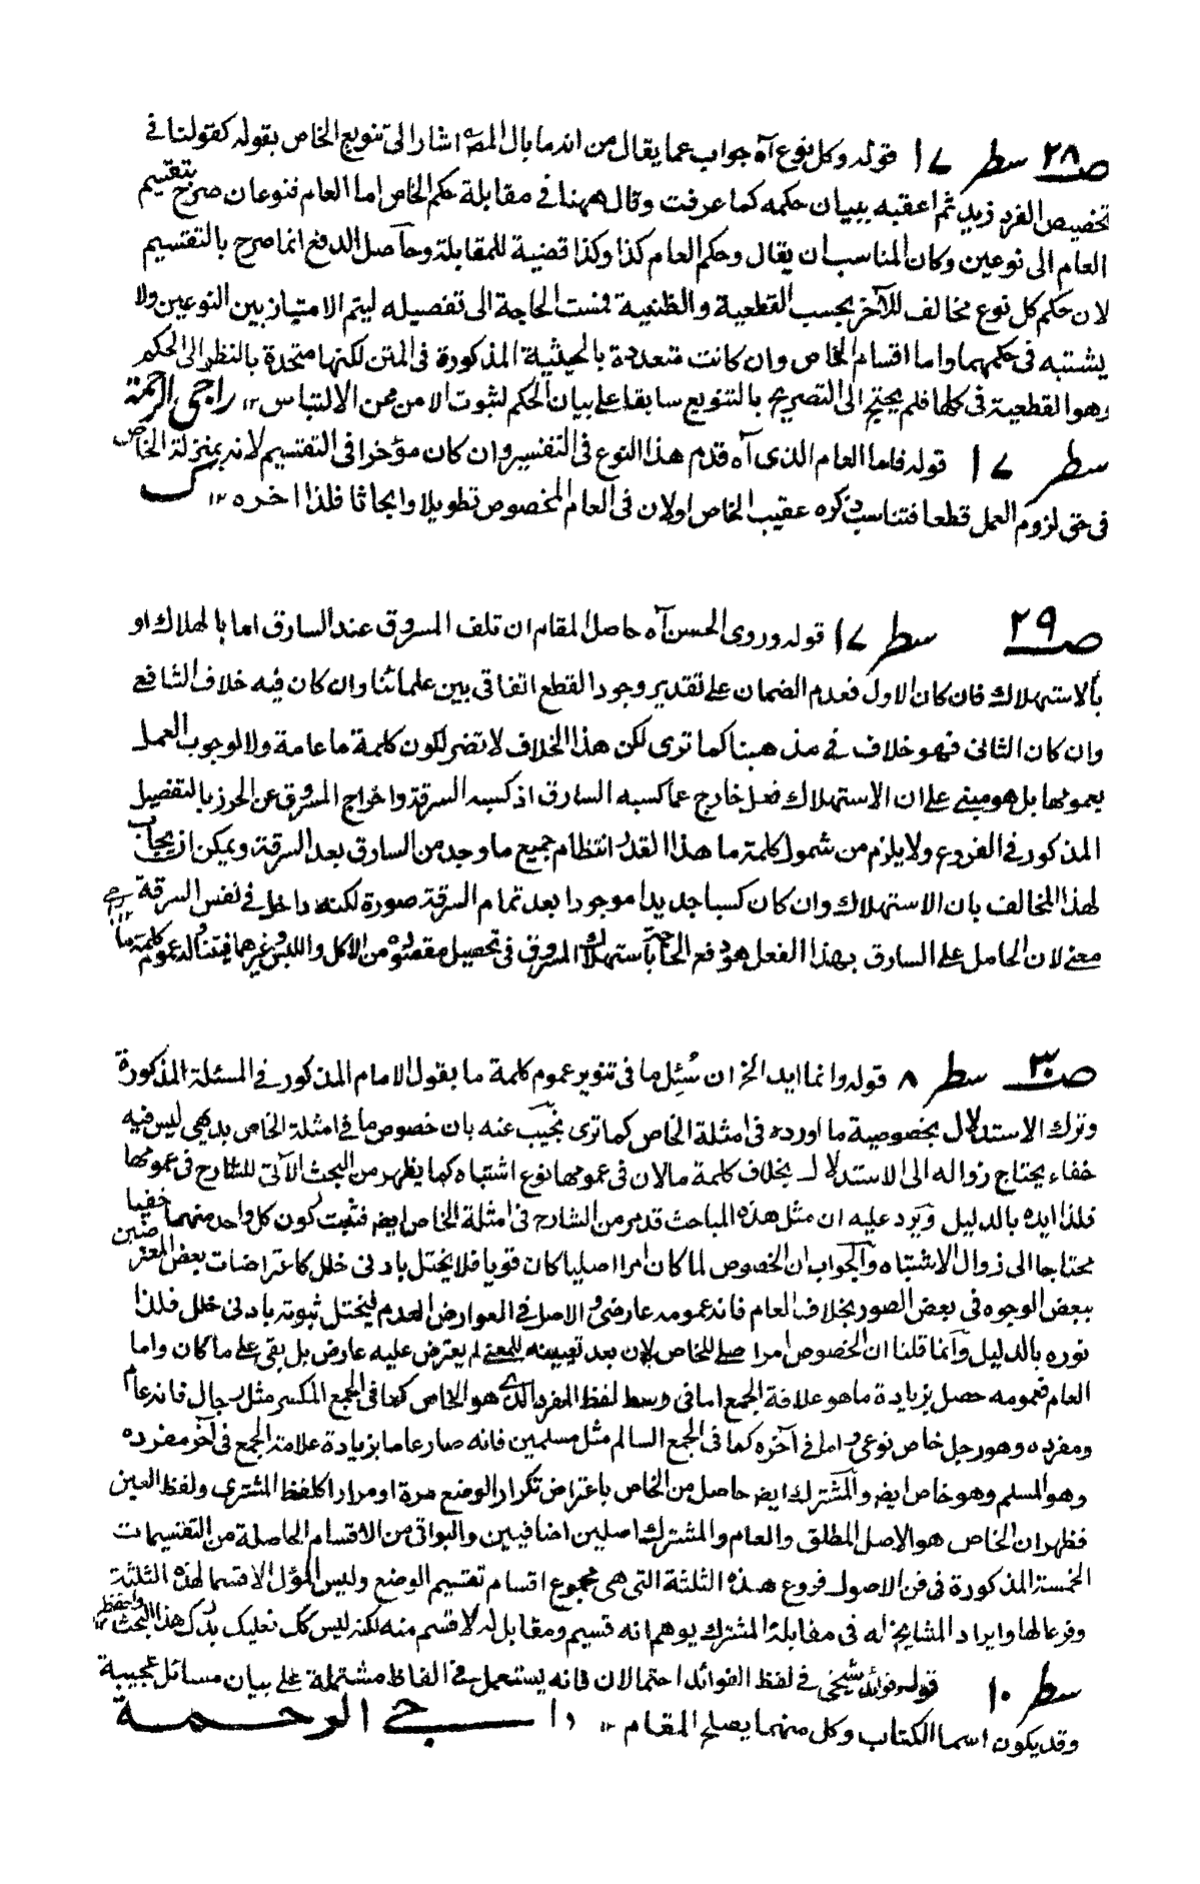 ص٢٨ سطر ١٧ قوله وكل نوع آه جواب عما يقال من انه ما بال المصـ اشار الى تنويع الخاص بقوله كقولنا في
تخصيص الفرد زيد ثم اعقبه ببيان حكمه كما عرفت وقال ههنا في مقابلة حكم الخاص اما العام فنوعان صرح بتقسيم
العام الى نوعين وكان المناسب ان يقال وحكم العام كذا وكذا قضية للمقابلة وحاصل الدفع انما صرح بالتقسيم
لان حكم كل نوع مخالف للآخر بحسب القطعية والظنية فمست الحاجة الى تفصيله ليتم الامتياز بين النوعين ولا
يشتبه في حكمهما واما اقسام الخاص وان كانت متعددة بالحيثية المذكورة فى المتن لكنها متحدة بالنظر الى الحكم
وهو القطعية فى كلها فلم يحتج الى التصريح بالتنويع سابقا على بيان الحكم لثبوت الامن عن الالتباس ١٢ راجى الرحمة
سطر ١٧ قوله فاما العام الذى آه قدم هذا النوع فى التفسير وان كان مؤخرا فى التقسيم لانه بمنزلة الخاص
فى حق لزوم العمل قطعا فتناسب ذكره عقيب الخاص او لان فى العام المخصوص تطويلا وابحاثا فلذا اخره ١٢
ص٢٩ سطر ١٧ قوله وروى الحسن آه حاصل المقام ان تلف المسروق عند السارق اما بالهلاك او
بالاستهلاك فان كان الاول فعدم الضمان على تقدير وجود القطع اتفاقى بين علمائنا وان كان فيه خلاف الشافعى
وان كان الثانى فهو خلاف فى مذهبنا كما ترى لكن هذا الخلاف لا تضر لكون كلمة ما عامة ولا لوجوب العمل
بعمومها بل هو مبنى على ان الاستهلاك فعل خارج عما كسبه السارق اذ كسبه السرقة واخراج المسروق عن الحرز بالتفصيل
المذكور فى الفروع ولا يلزم من شمول كلمة ما هذا القدر انتظام جميع ما وجد من السارق بعد السرقة ويمكن ان يجاب
لهذا المخالف بان الاستهلاك وان كان كسبا جديدا موجودا بعد تمام السرقة صورة لكنه داخل فى نفس السرقة
معنى لان الحامل على السارق بهذا الفعل هو دفع الحاجة باستهلاك المسروق فى تحصيل مقصوده من الاكل واللبس وغيرهما فيتناوله عموم كلمة ما
ص٣٠ سطر ٨ قوله وانما ايد الخ ان سُئِل ما فى تنوير عموم كلمة ما بقول الامام المذكور فى المسئلة المذكورة
وترك الاستدلال بخصوصية ما اورده فى امثلة الخاص كما ترى نجيب عنه بان خصوص ما فى امثلة الخاص بديهى ليس فيه
خفاء يحتاج زواله الى الاستدلال بخلاف كلمة ما لان فى عمومها نوع اشتباه كما يظهر من البحث الآتى للشارح فى عمومها
فلذا ايده بالدليل وَيَرد عليه ان مثل هذه المباحث قد مر من الشارح فى امثلة الخاص ايضـ فثبت كون كل واحد منهما خفيا
محتاجا الى زوال الاشتباه والجواب ان الخصوص لما كان امرا اصليا كان قويا فلا يختل بادنى خلل كاعتراضات بعض المعترضين
ببعض الوجوه فى بعض الصور بخلاف العام فانه عمومه عارضى والاصل فى العوارض العدم ليختل ثبوته بادنى خلل فلذا
نوره بالدليل وانما قلنا ان الخصوص امر اصلى للخاص لان بعد تعيينه للمعنى لم يعترض عليه عارض بل بقى على ما كان واما
العام فعمومه حصل بزيادة ما هو علامة الجمع اما فى وسط لفظ المفرد الذى هو الخاص كما فى الجمع المكسر مثل رجال فانه عام
ومفرده وهو رجل خاص نوعى واما فى آخره كما فى الجمع السالم مثل مسلمين فانه صار عاما بزيادة علامة الجمع فى آخر مفرده
وهو المسلم وهو خاص ايضـ والمشترك ايضـ حاصل من الخاص باعتراض تكرار الوضع مرة او مرارا كلفظ المشترى ولفظ العين
فظهر ان الخاص هو الاصل المطلق والعام والمشترك اصلين اضافيين والبواقى من الاقسام الحاصلة من التقسيمات
الخمسة المذكورة فى فن الاصول فروع هذه الثلثة التى هى مجموع اقسام تقسيم الوضع وليس المؤل الا قسما لهذه الثلثة
وفرعا لها وايراد المشايخ له فى مقابلة المشترك يوهم انه قسيم ومقابل له لا قسم منه لكنه ليس كك فعليك بدرك هذا البحث واحفظ ١٢
سطر ١٠ قوله فوائد شيخى فى لفظ الفوائد احتمالان فانه يستعمل فى الفاظ مشتملة على بيان مسائل عجيبة
وقد يكون اسما لكتاب وكل منهما يصلح المقام ١٢ راجى الرحمة